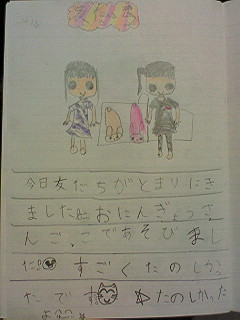 今日友だちがとまりにき
ました おにんぎょうさ
んごっこであそびまし
た! すごくたのしかっ
たです たのしかった
よ